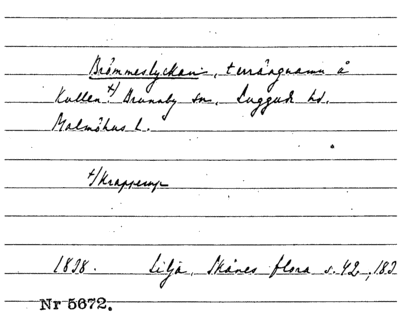 Brömmeslyckan, terrängnamn å
Kullen +/ Brunnby sn, Luggude hd,
Malmöhus l.
+/ Krapperup
1838. Lilja, Skånes flora s. 42, 183
Nr 5672.